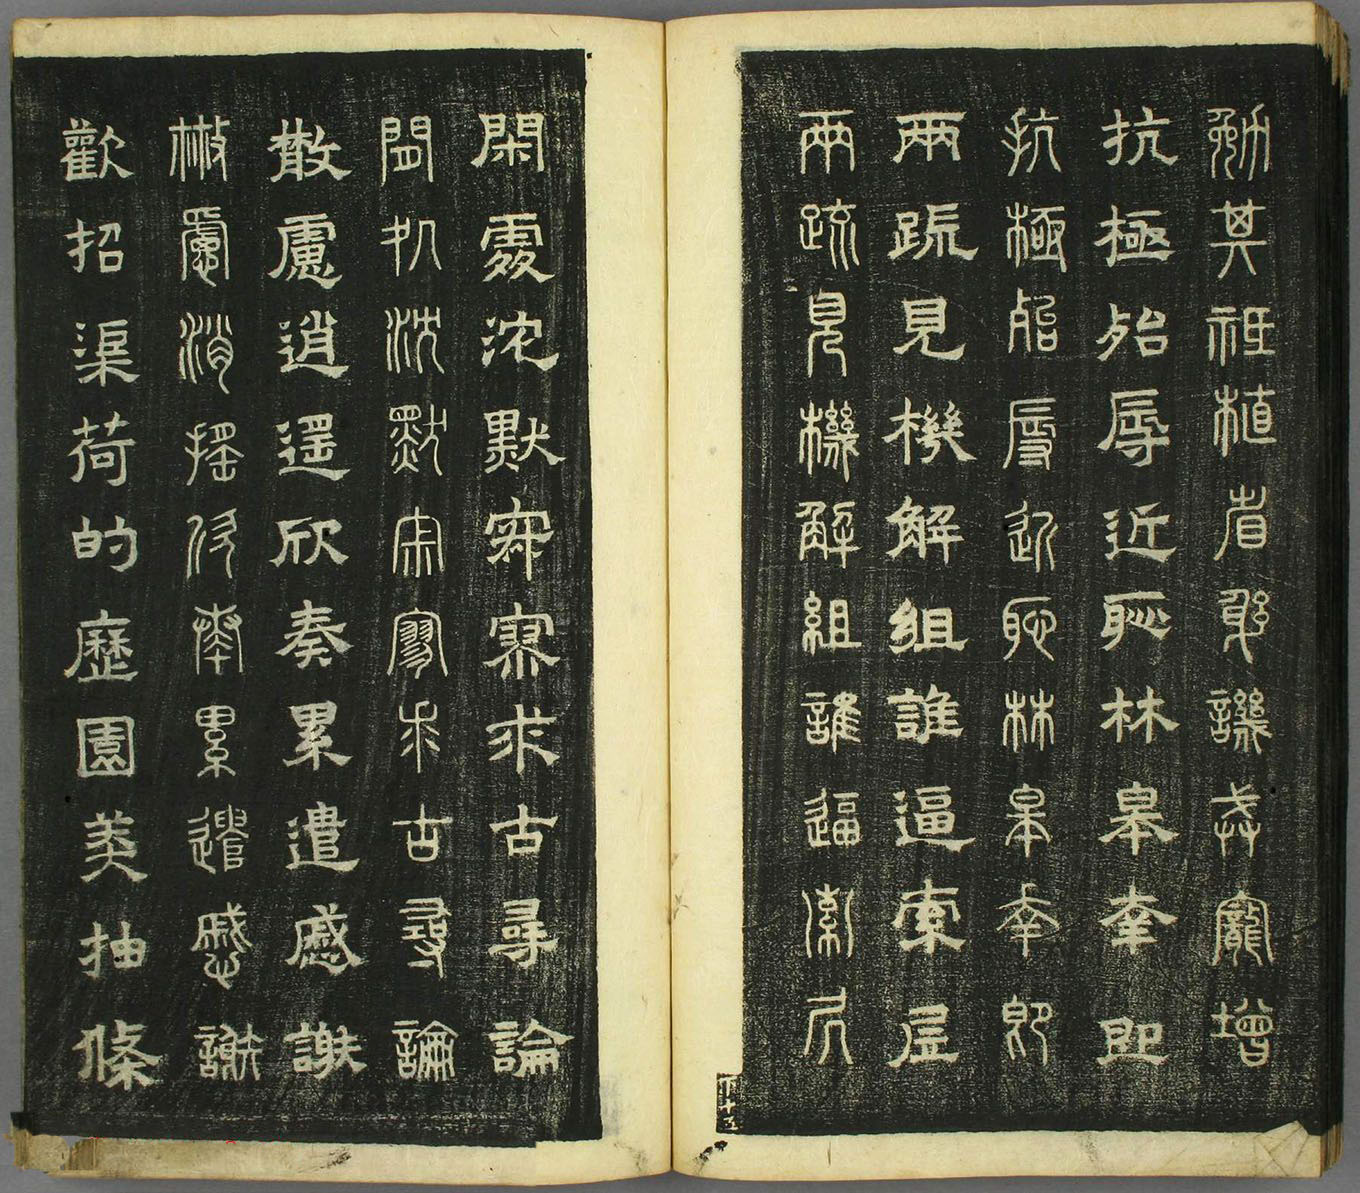 勉其祗植省躬譏誡寵增
抗極殆辱近恥林皋幸即
抗極殆辱近恥林皋幸即
兩疏見機解組誰逼索居
兩疏見機解組誰逼索凥
下十五
閑處沈默寂寥求古尋論
閑処沈默宋寥求古尋論
散慮逍遙欣奏累遣慼謝
散慮消搖欣奏累遣慼謝
歡招渠荷的歷園莽抽條